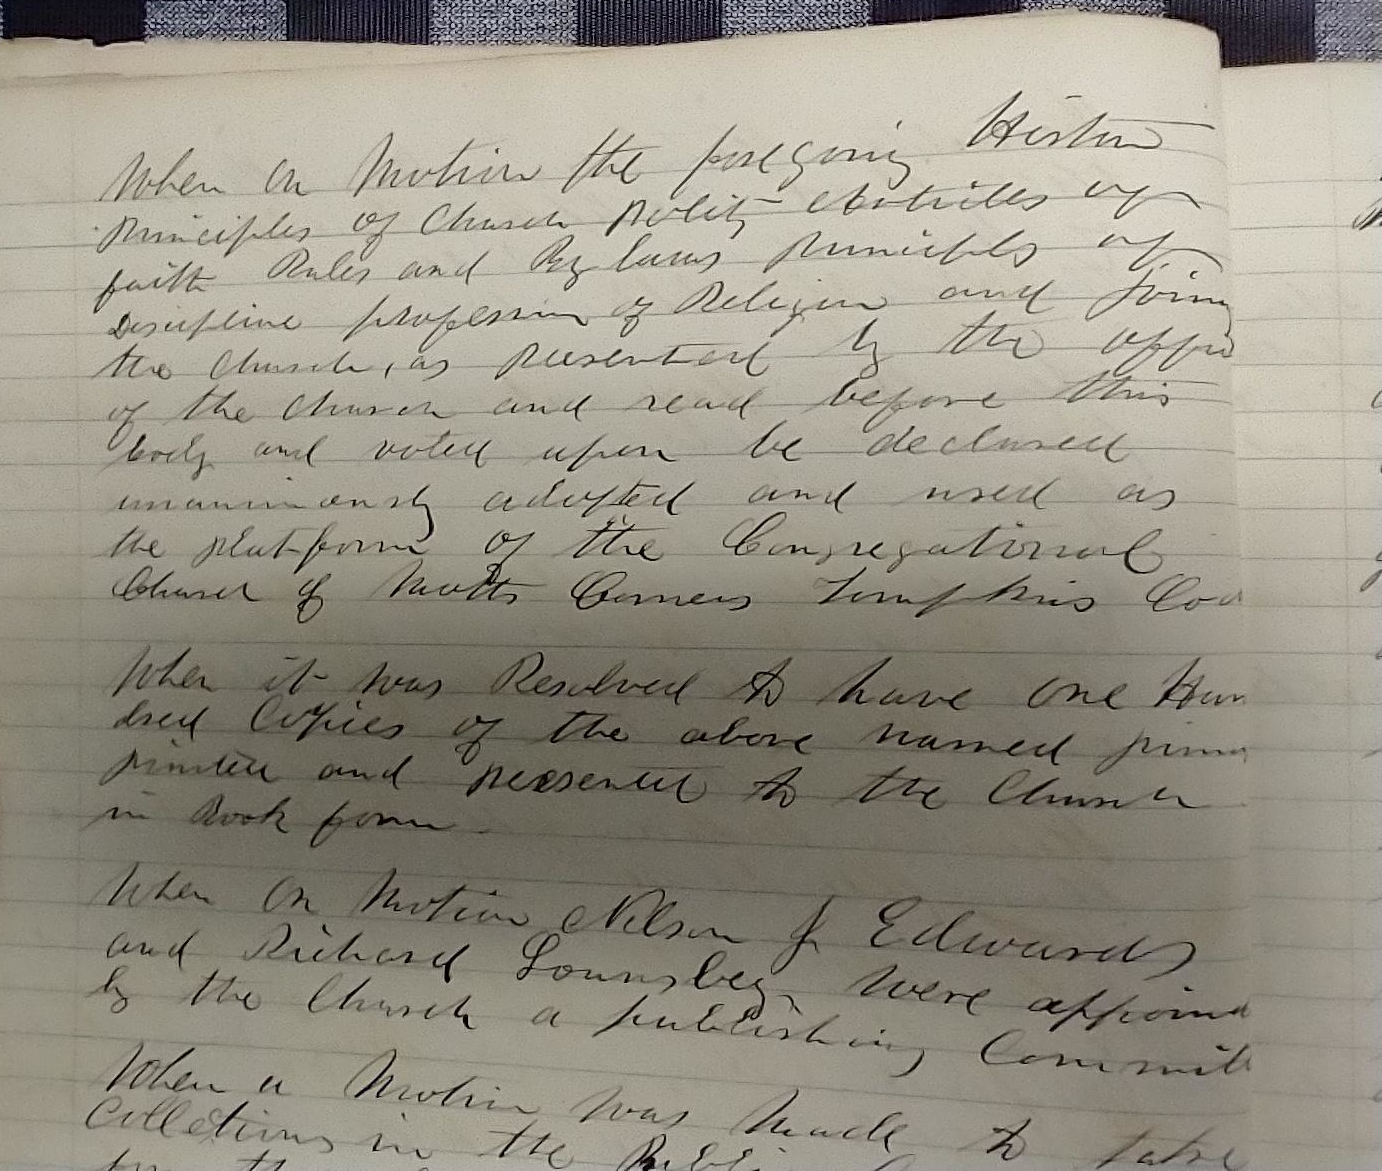 When on Motion the foregoing Histor
principles of Church polity Articles of
faith Rules and By laws principls of
Discipline profession of Religion and joing
the Church, as presented by the offic
of the Church and read before this
body and voted upon be declared
unanimously adopted and used as
the platform of the Congregational
Church of Motts Corners Tompkins Co
When it was Resolved to have one Hun
dred Copies of the above named
printed and presented to the Church
in Book form
When on Motion Nelson J. Edwards
and Richard Lounsbey were appoint
by the Church a publishing Committ
When a Motion was made to take
Colletions in the Publi